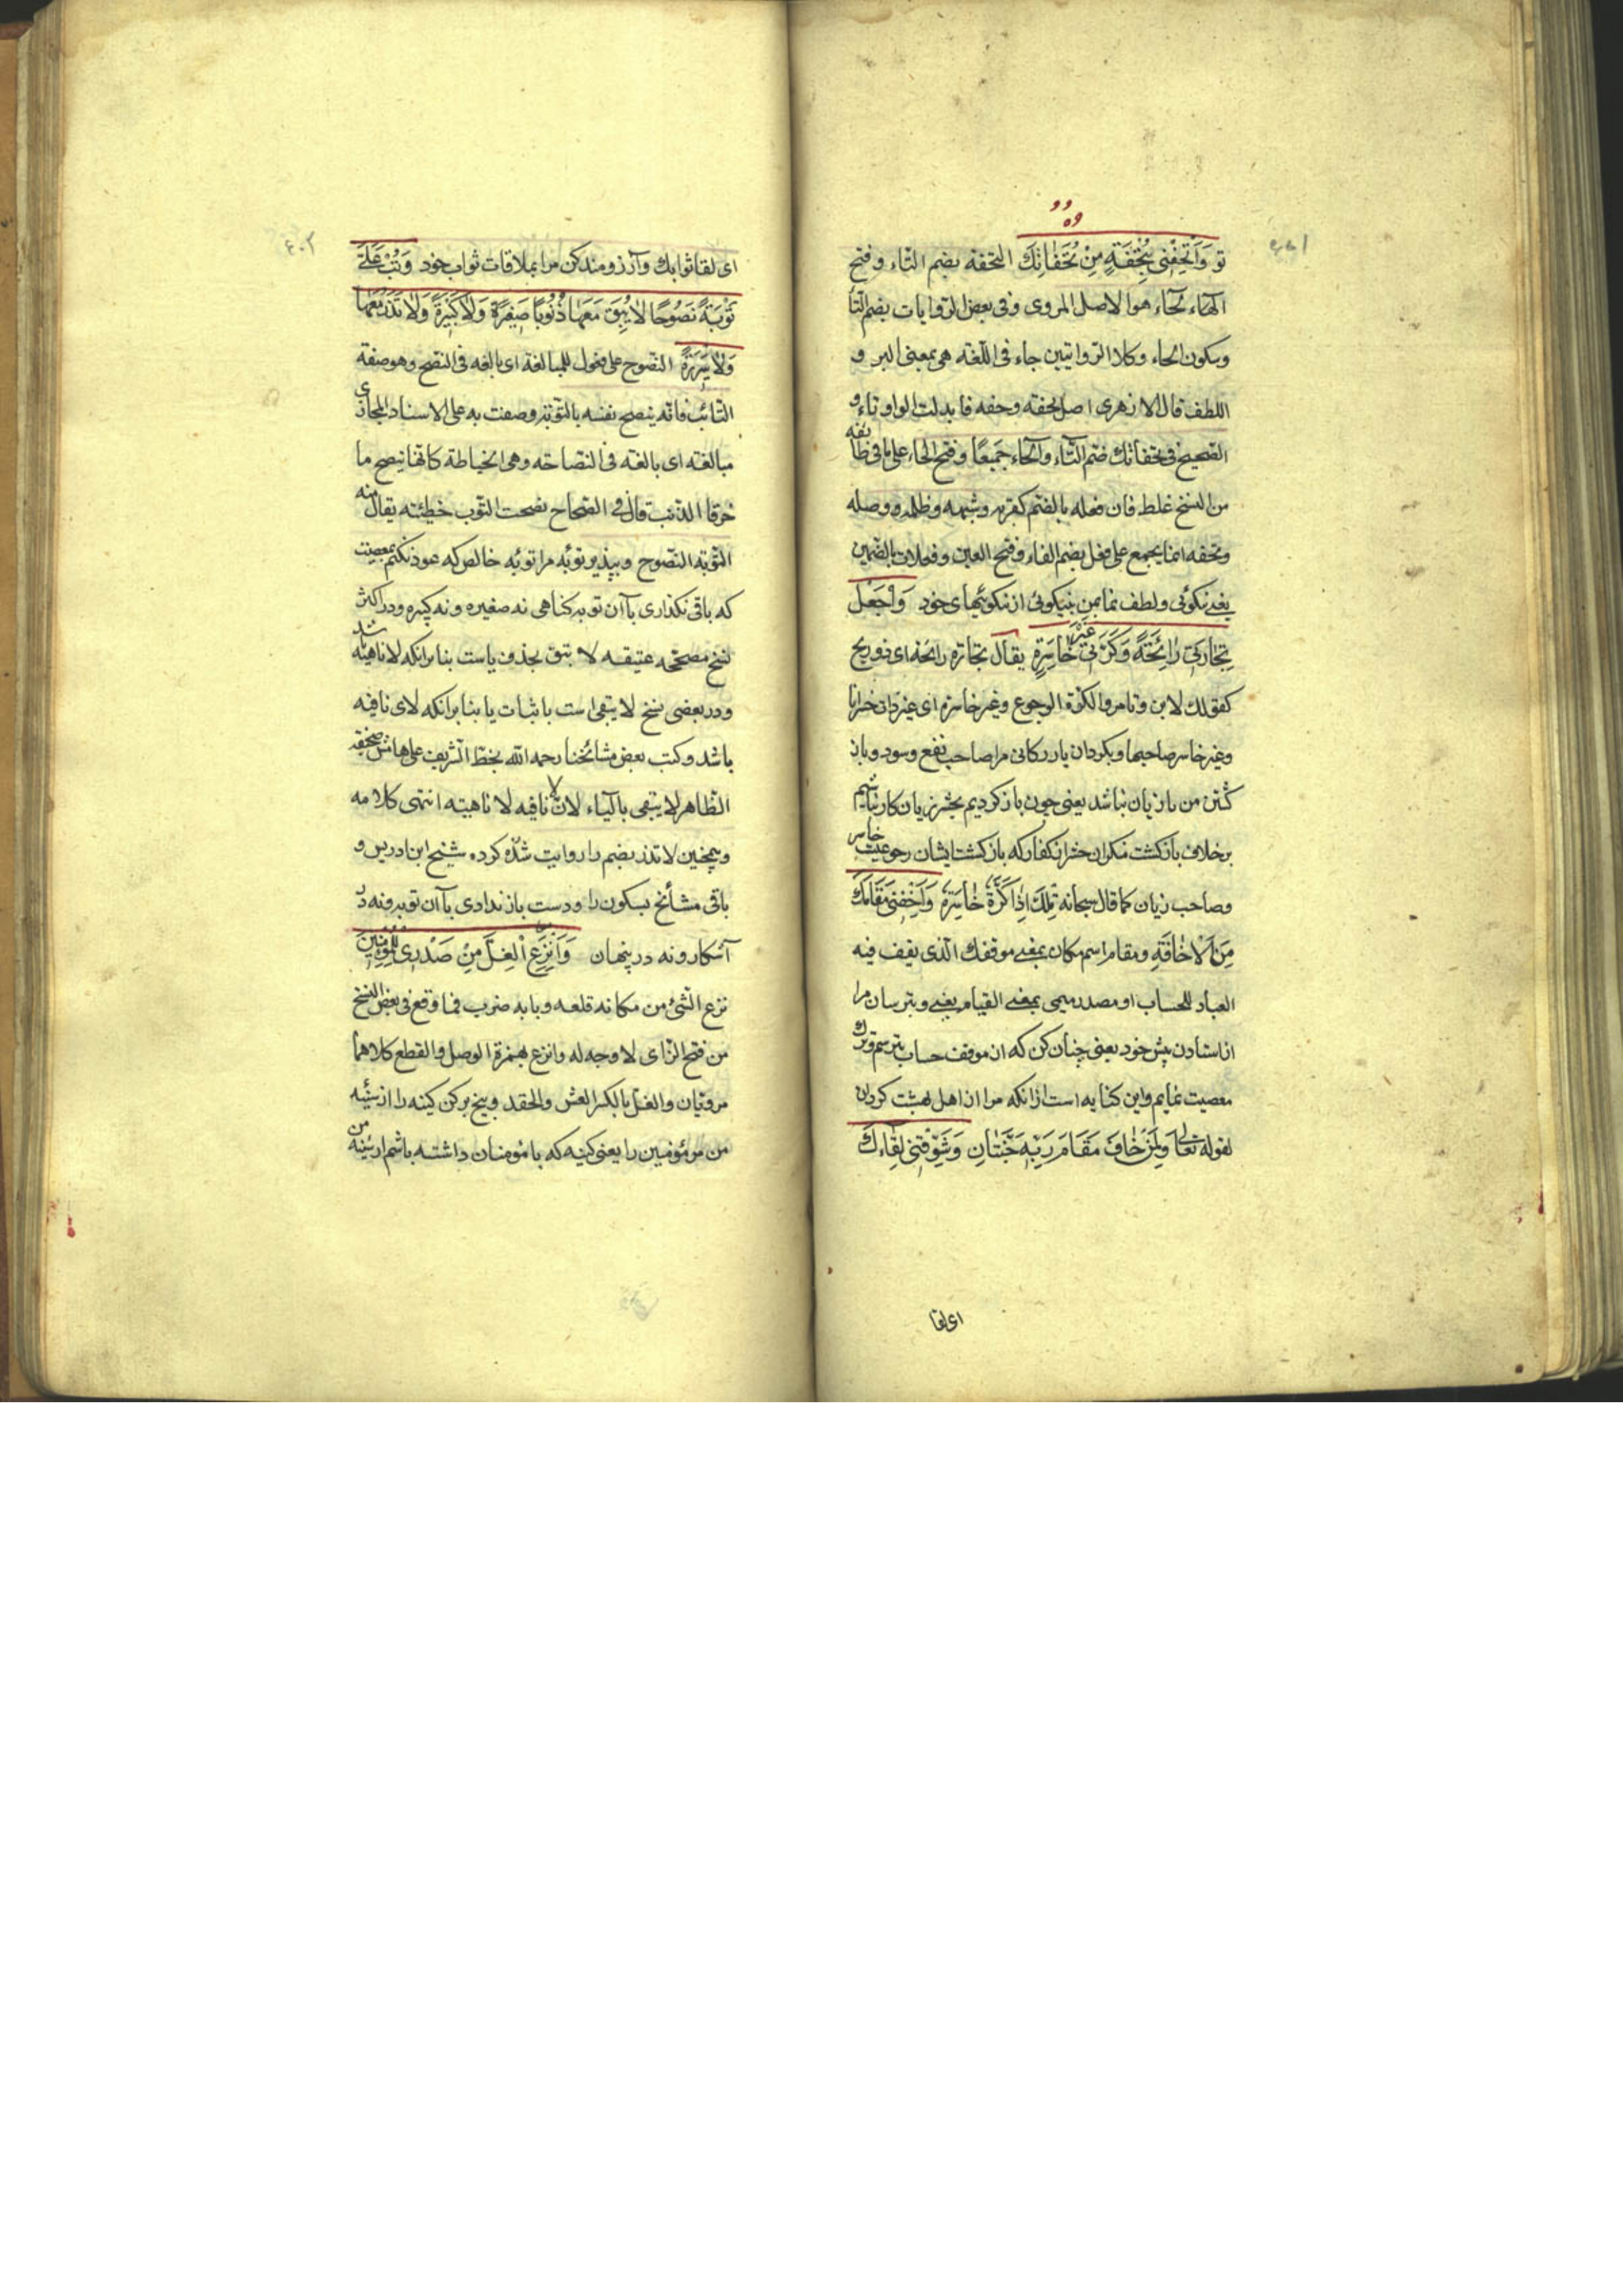 تو وَأَتْحِفْنِی بِتُحْفَةٍ مِنْ تُحَفَاتِكَ التحفه بضم التاء و فتح
الحاء هو الاصل المروی وفی بعض الروایات بضم التا
وسکون الحاء وکلا الروایتین جاء فی اللغه هی بمعنی البر و
اللطف قال الازهری اصل تحفته وحفه فابدلت الواو تاء و
الصحیح فی تحفاتك ضم التاء والحاء جَمیعًا وفتح الحاء علی ما فی طائفه
من النسخ غلط فان فعله بالضم کقربه وشبهه وظلمه ووصله
وتحفه انما یجمع علی فعل بضم الفاء وفتح العین وفعلات بالضمین
یعنی نکوئی ولطف نما بمن بنیکوئی از نکوئیهای خود وَاجْعَلْ
تِجَارَتِی رَابِحَةً وَكَرَّتِی غَیْرَ خَاسِرَةٍ یقال تجارة رابحة ای ذو ربح
کقولك لابن وتامر والکرة الرجوع وغیر خاسره ای غیر ذات خسران
وغیر خاسر صاحبها وبکردان بازرکانی مرا صاحب نفع وسود وباز
کشتن من با زیان نباشد یعنی چون باز کردیم بحشر زیان کار نباشیم
برخلاف بازکشت منکران حشر از کفار که بازکشت ایشان رجوعیست خاسر
وصاحب زیان کما قال سبحانه تِلْكَ إِذًا كَرَّةٌ خَاسِرَةٌ وَأَخِفْنِی مَقَامَكَ
مِنَ الْاِخَافَةِ ومقام اسم مکان بمعنی موقفك الذی یقف فیه
العباد للحساب او مصدر میمی بمعنی القیام یعنی وبترسان مرا
از استادن پیش خود یعنی چنان کن که از موقف حساب بترسم وترك
معصیت نمایم واین کنایه است ازانکه مرا از اهل بهشت کردان
لقوله تعالی وَلِمَنْ خَافَ مَقَامَ رَبِّهِ جَنَّتَانِ وَشَوِّقْنِی لِقَاءَكَ
ای لقا
۴۰۲
ای لقا ثوابك وآرزومند کن مرا بملاقات ثواب خود وَتُبْ عَلَیَّ
تَوْبَةً نَصُوحًا لَا تُبْقِ مَعَهَا ذُنُوبًا صَغِیرَةً وَلَا كَبِیرَةً وَلَا تَذَرْ مَعَهَا
وَلَا سَرِیرَةً النصوح علی فعول للمبالغة ای بالغه فی النصح وهو صفة
التائب فانه ینصح نفسه بالتوبة وصفت به علی الاسناد المجازی
مبالغته ای بالغه فی النصاحه وهی الخیاطة کانها تنصح ما
خرقا الذنب قال فی الصحاح نصحت الثوب خطیته یقال منه
التوبة النصوح وبپذیر توبه مرا توبه خالص که عود نکنم بمعصیت
که باقی نکذاری بآن توبه کناهی نه صغیره ونه کبیره ودر اکثر
نسخ مصححه عتیقه لا تبق بحذف یاست بنا برانکه لا ناهیه باشد
ودر بعضی نسخ لا یبقی است باثبات یا بنا برانکه لای نافیه
باشد وکتب بعض مشائخنا رحمه الله بخط الشریف علی هامش صحیفه
الظاهر لا یبقی بالیاء لان لا نافیه لا ناهیته انتهی کلامه
وهمچنین لا تذر بضم را روایت شده کرده شیخ ابن ادریس و
باقی مشائخ بسکون را ودست باز نداری بآن توبه ونه در
آشکار ونه در پنهان وَانْزِعِ الْغِلَّ مِنْ صَدْرِی لِلْمُؤْمِنِینَ
نزع الشیء من مکانه قلعه وبابه ضرب فما وقع فی بعض النسخ
من فتح الزای لا وجه له وانزع بهمزة الوصل والقطع کلاهما
مرویان والغل بالکسر الغش والحقد وبیخ برکن کینه را از سینه
من مر مؤمنین را یعنی کینه که با مؤمنان داشته باشم از سینه من